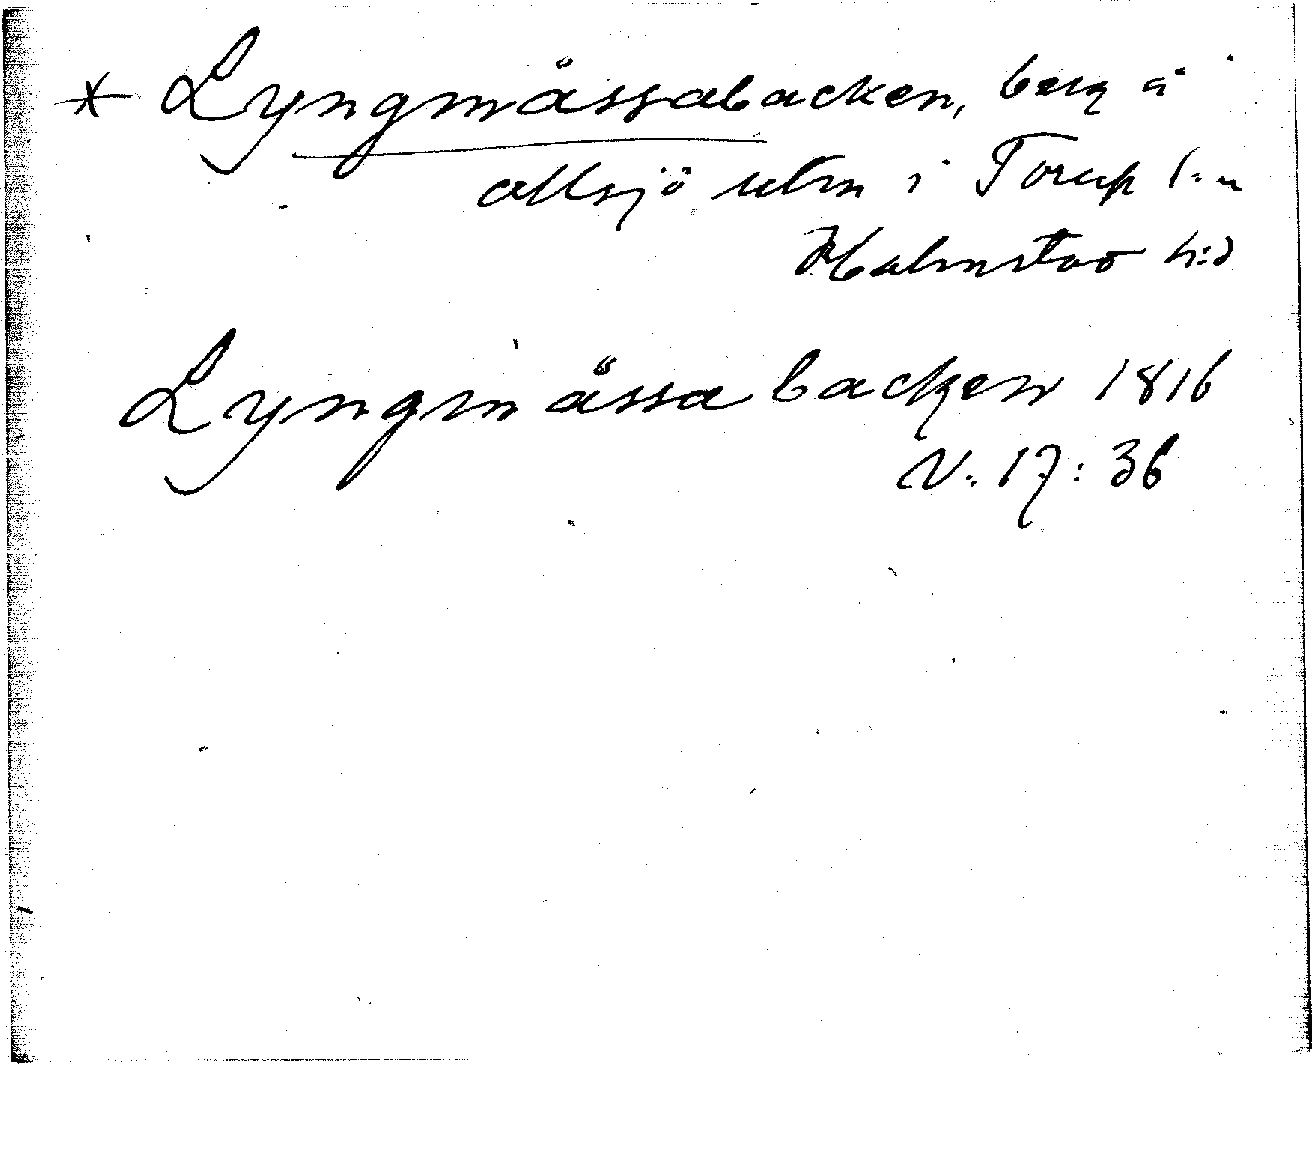 * Lyngmåssabacken, berg å
Allsjö utm i Torup s:n
Halmstad h:d
Lyngmåssa backen 1816
V. 17: 36